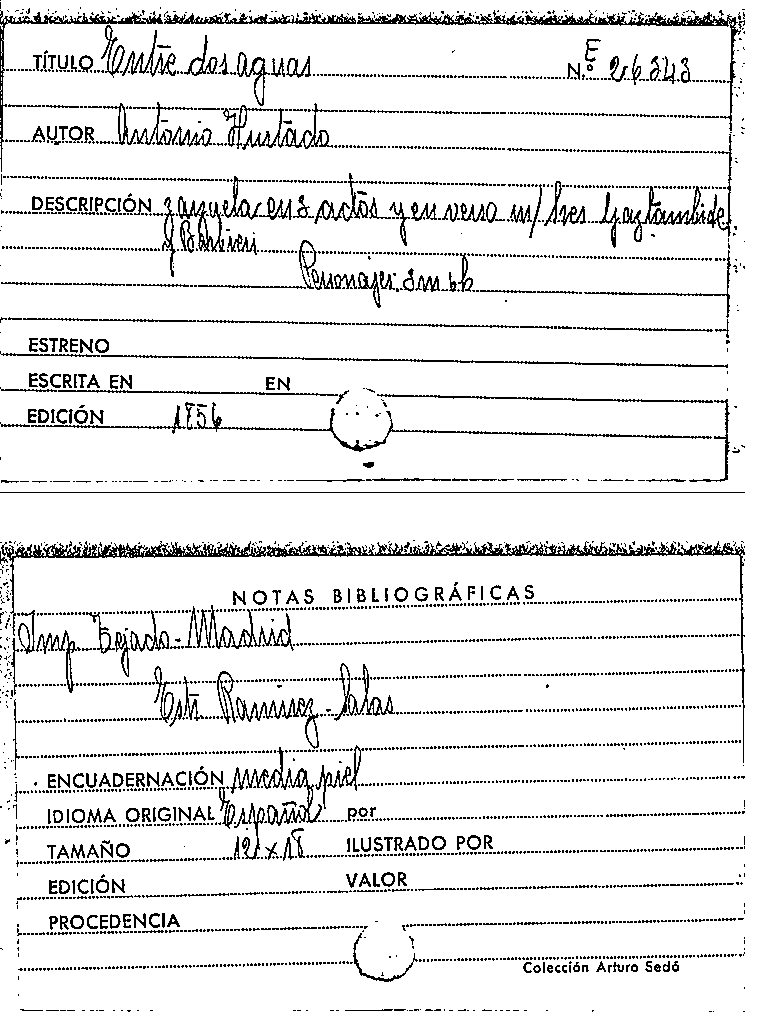 TÍTULO Entre dos aguas N.º E 26343
AUTOR Antonio Hurtado
DESCRIPCIÓN zarzuela en 3 actos y en verso m/ Sres Gaztambide
y Barbieri
Personajes: 3m 6h
ESTRENO
ESCRITA EN EN
EDICIÓN 1856
NOTAS BIBLIOGRÁFICAS
Imp. Tejado - Madrid
Estr. Ramírez - Salas
ENCUADERNACIÓN media piel
IDIOMA ORIGINAL Español por
TAMAÑO 12 x 18 ILUSTRADO POR
EDICIÓN VALOR
PROCEDENCIA
Colección Arturo Sedó